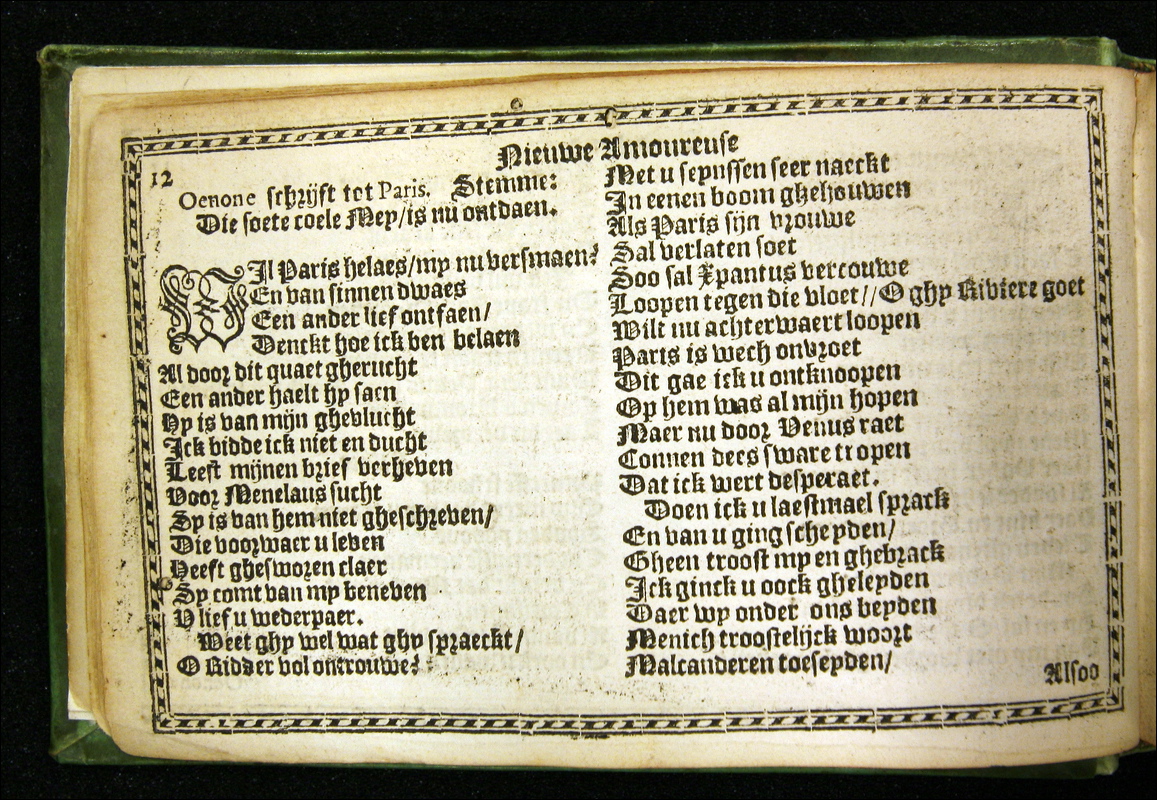 Nieuwe Amoureuse
12
Oenone schrijft tot Paris. Stemme:
Die soete coele Mey/is nu ontdaen.
WIl Paris helaes/my nu versmaen?
En van sinnen dwaes
Een ander lief ontfaen/
Denckt hoe ick ben belaen
Al door dit quaet gherucht
Een ander haelt hy saen
Hy is van mijn ghevlucht
Ick bidde ick niet en ducht
Leest mijnen brief verheven
Voor Menelaus sucht
Sy is van hem niet gheschreven/
Die voorwaer u leven
Heeft ghesworen claer
Sy comt van my beneven
V lief u wederpaer.
Weet ghy wel wat ghy spraeckt/
O Ridder vol ontrouwe?
Met u sepnssen seer naeckt
In eenen boom ghehouwen
Als Paris sijn vrouwe
Sal verlaten soet
Soo sal Xpantus vercouwe
Loopen tegen die vloet//O ghy Riviere goet
Wilt nu achterwaert loopen
Paris is wech onvroet
Dit gae ick u ontknoopen
Op hem was al mijn hopen
Maer nu door Venus raet
Connen dees sware tropen
Dat ick wert desperaet.
Doen ick u laestmael sprack
En van u ging scheyden/
Gheen troost my en ghebrack
Ick ginck u oock gheleyden
Daer wy onder ons beyden
Menich troostelijck woort
Malcanderen toeseyden/
Alsoo